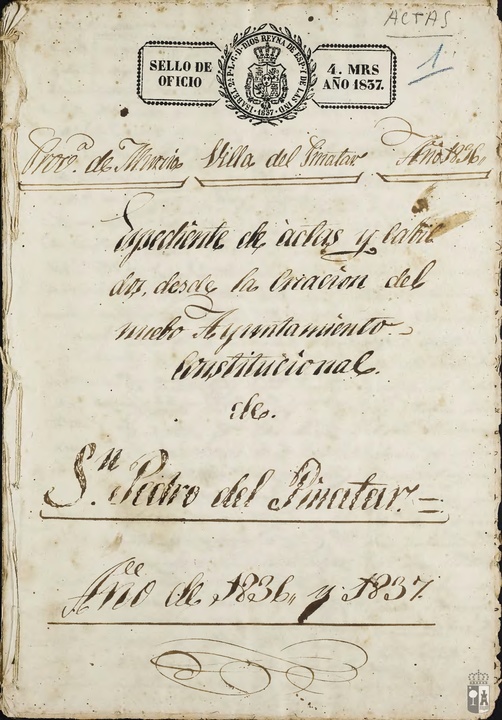 ACTAS
1
SELLO DE OFICIO
ISABEL 2ª P.L.G.D. DIOS REYNA DE ESP. Y DE LAS IND.
1837
4. MRS AÑO 1837.
Provª. de Murcia Villa del Pinatar Año. 1836
Expediente de actas y cabil
dos, desde la Creacion del
nuebo Ayuntamiento
Constitucional.
de.
Sn. Pedro del Pinatar.=
Año de 1836 y 1837.